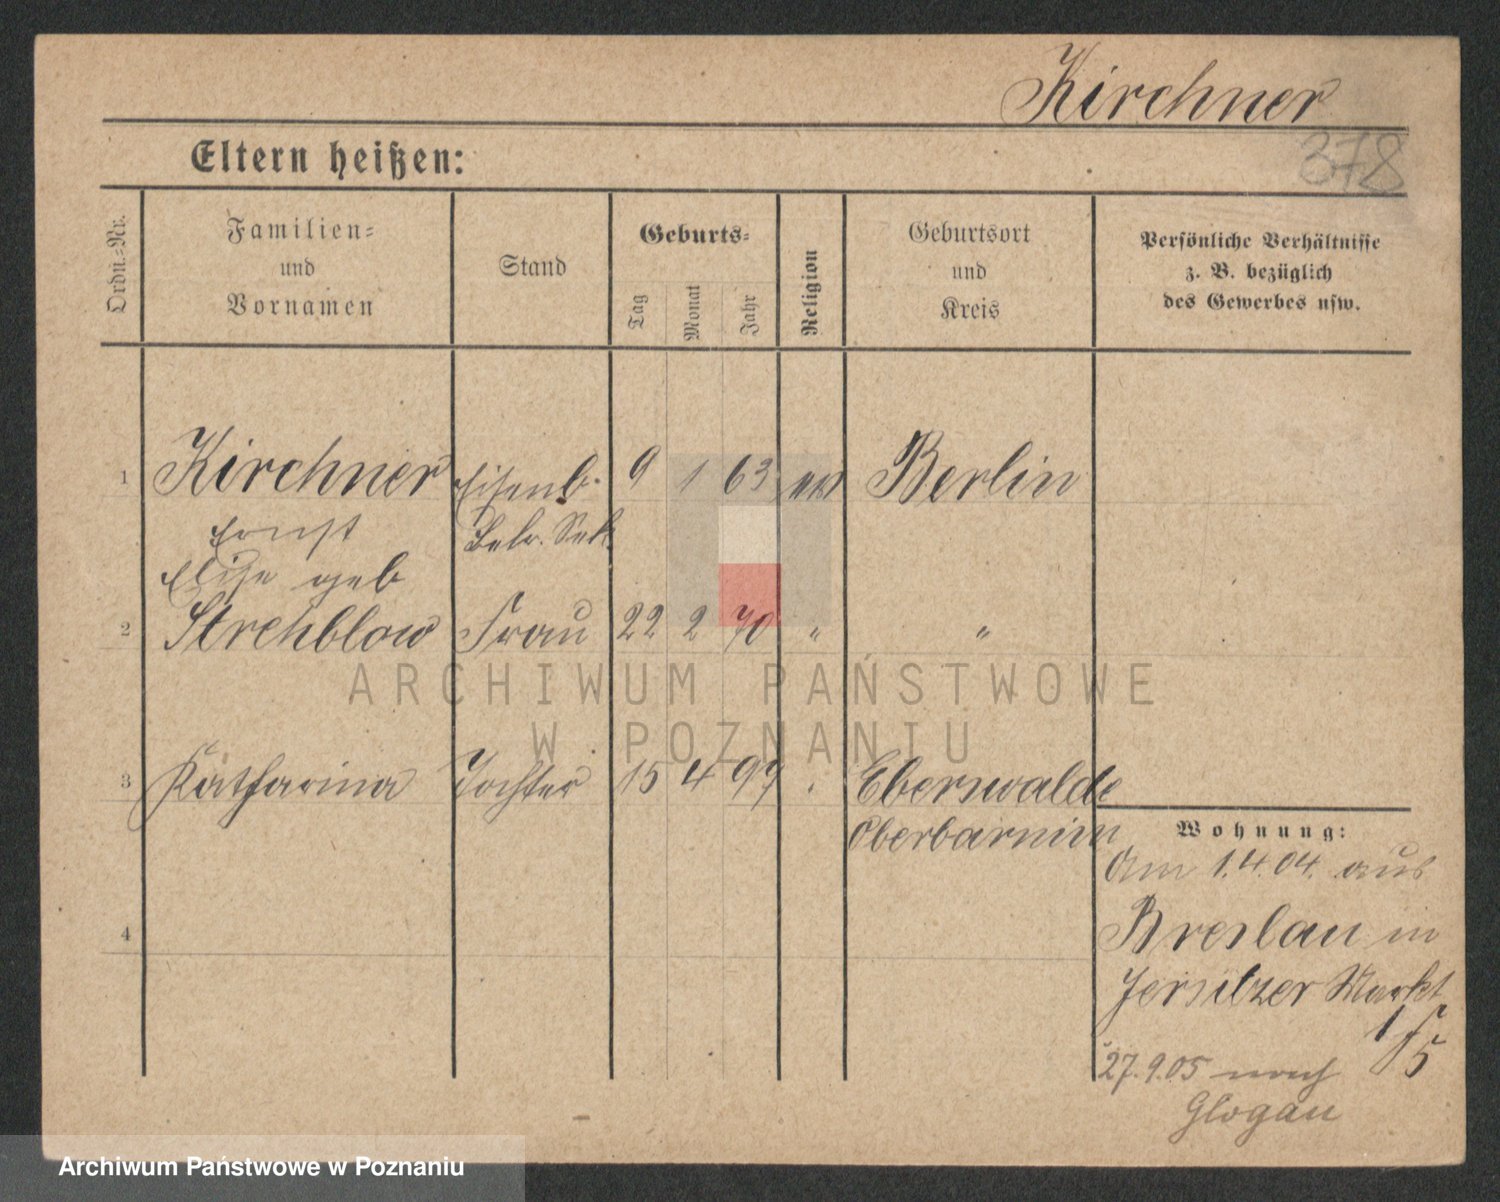 Kirchner
378
Eltern heißen:
Ordn.-Nr.
Familien-
und
Vornamen
Stand
Geburts-
Tag
Monat
Jahr
Religion
Geburtsort
und
Kreis
Persönliche Verhältnisse
z. B. bezüglich
des Gewerbes usw.
1 Kirchner Eisenb. 9 1 63 Berlin
Ernst Betr. Sek.
Elise geb
2 Strehblow Frau 22 2 70 " "
3 Katharina Tochter 15 4 97 Eberswalde
Oberbarnim
4
Wohnung:
Am 1.4.04. aus
Breslau in
Jersitzer Markt
1
5
27.9.05 nach
Glogau
ARCHIWUM PAŃSTWOWE
W POZNANIU
Archiwum Państwowe w Poznaniu